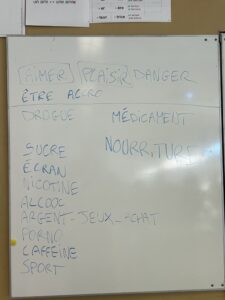 [AIMER] [PLAISIR] DANGER
ÊTRE ACCRO
DROGUE MÉDICAMENT
SUCRE NOURRITURE
ÉCRAN
NICOTINE
ALCOOL
ARGENT - JEUX - ACHAT
PORNO
CAFFEINE
SPORT